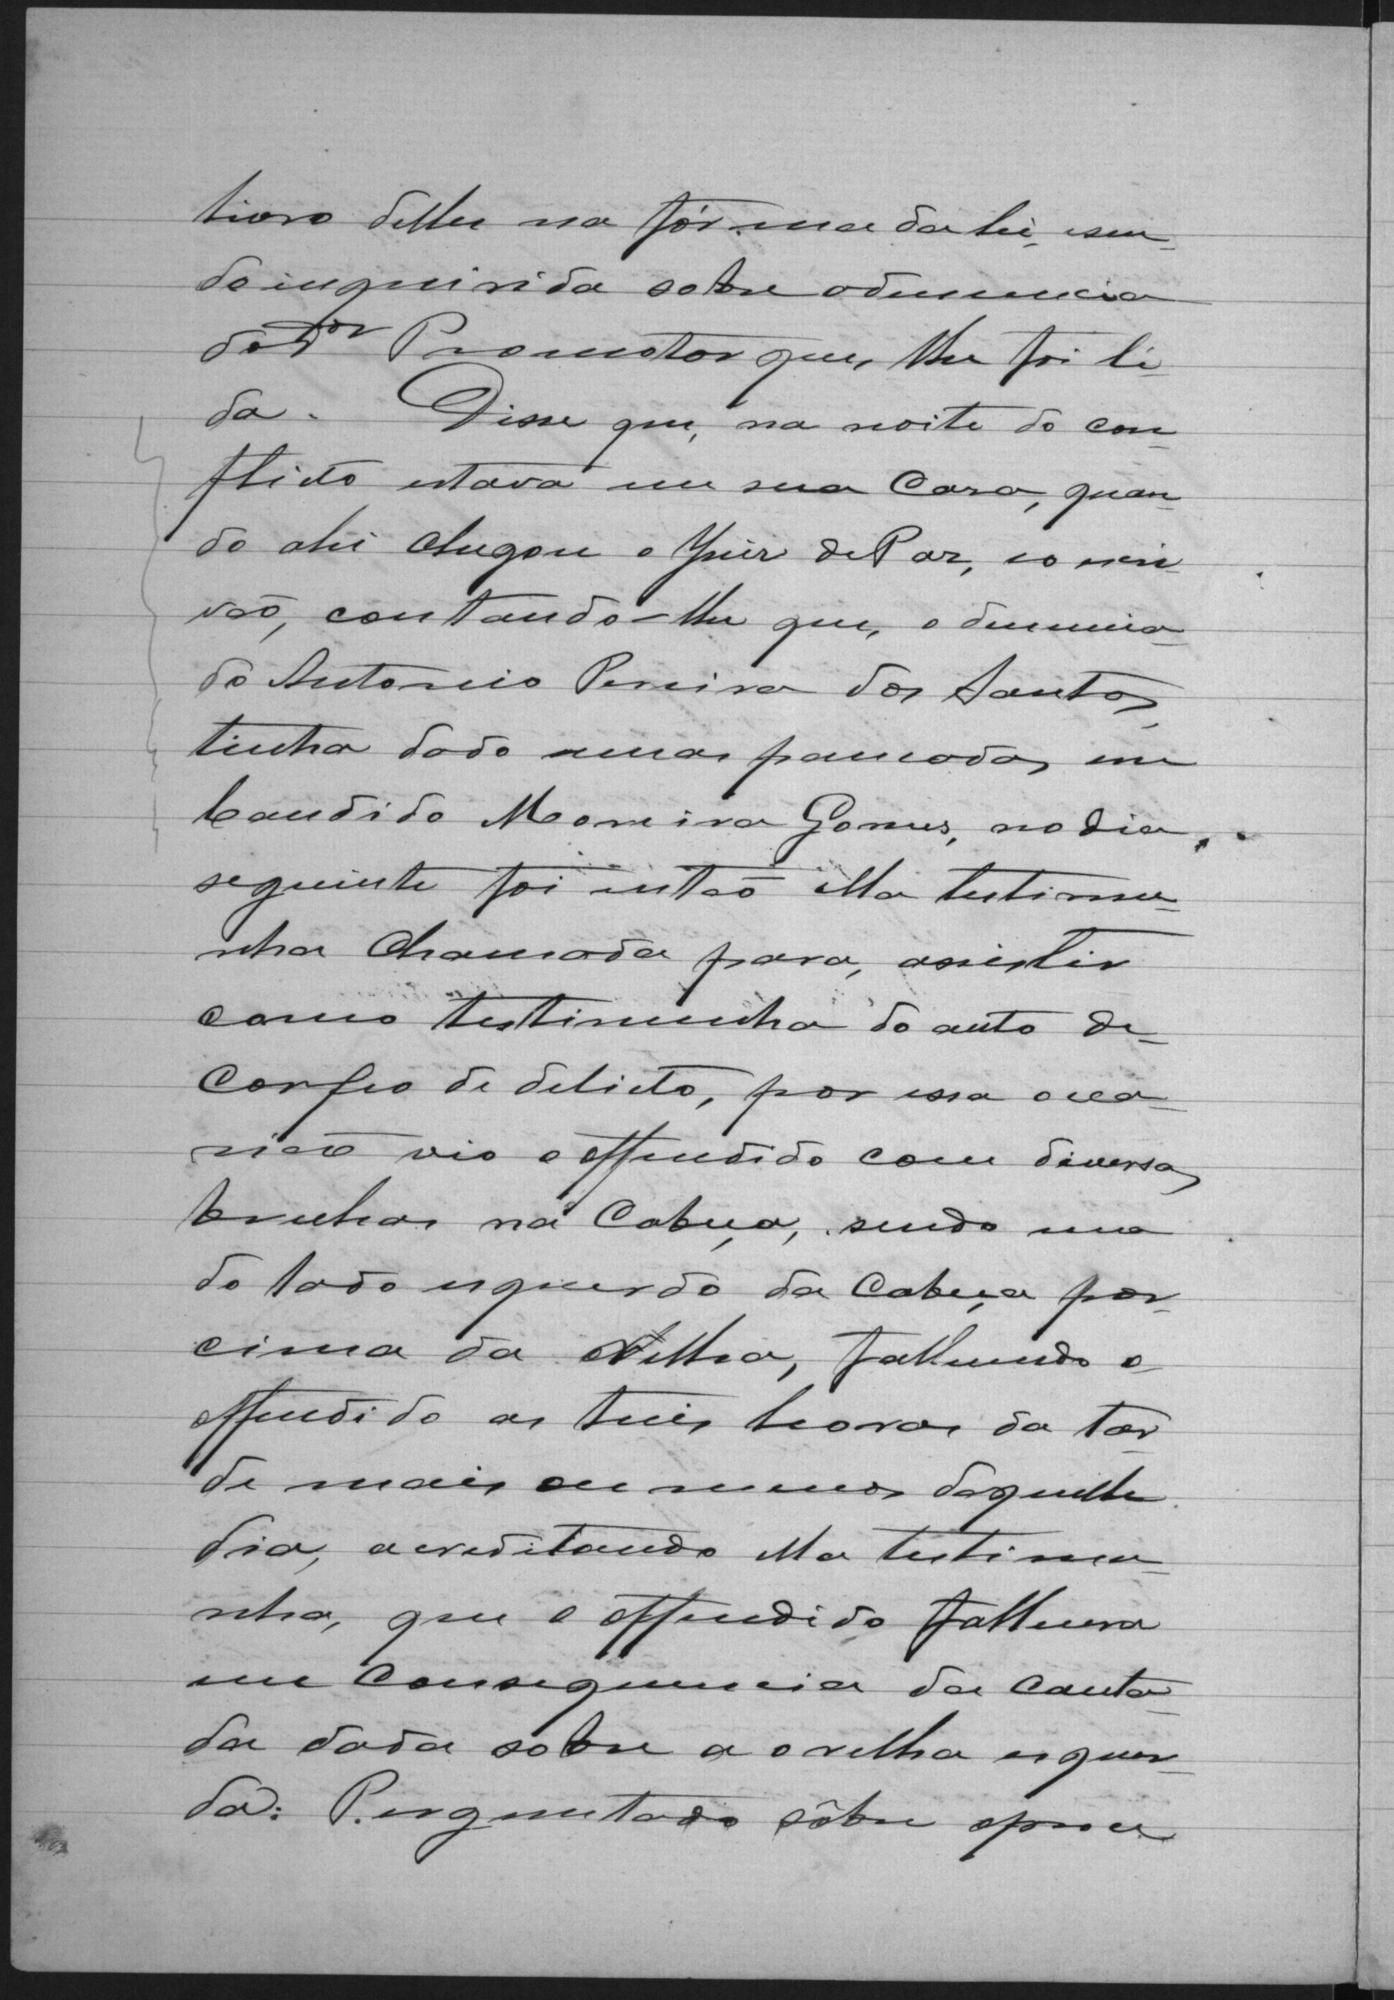 tivro delles na fórma da lei, sen-
do inquirida sobre a denuncia
do Dor Promotor que, lhe foi li-
da. Disse que, na noite do con-
flicto estava em sua Casa, quan-
do ahi chegou o Juiz de Paz, e o escri-
vaõ, contando-lhe que, o denuncia-
do Antonio Pereira dos Santos,
tinha dado umas pancadas em
Candido Moreira Gomes, no dia
seguinte foi entaõ ella testimu-
nha Chamada para, assistir
como testimunha do auto de-
Corpo de delicto, por essa occa-
siaõ vio o offendido com diversas
brechas na Cabeça, sendo uma
do lado esquerdo da Cabeça por-
cima da orelha, fallecendo o
offendido as treis horas da tar-
de mais ou menos daquelle
dia, acreditando ella testimu-
nha, que o offendido fallecera
em Consequencia da Canta-
da dada sobre a orelha esquer-
da: Perguntado sôbre o proce